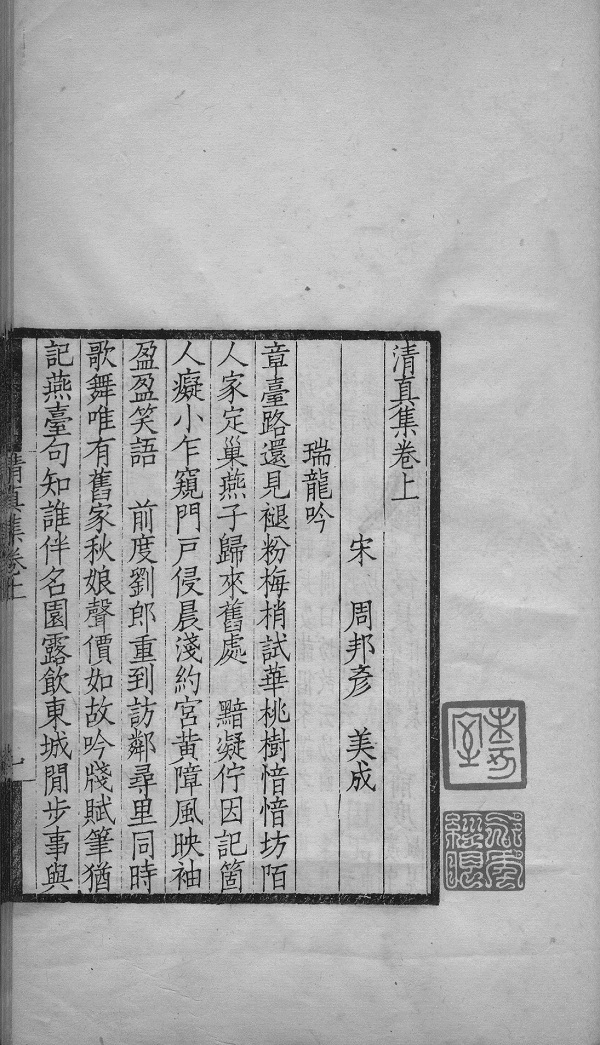 清真集卷上
宋 周邦彥 美成
瑞龍吟
章臺路還見褪粉梅梢試華桃樹愔愔坊陌
人家定巢燕子歸來舊處 黯凝佇因記箇
人癡小乍窺門戶侵晨淺約宮黃障風映袖
盈盈笑語 前度劉郎重到訪鄰尋里同時
歌舞唯有舊家秋娘聲價如故吟牋賦筆猶
記燕臺句知誰伴名園露飲東城閒步事與
清真集卷上
一